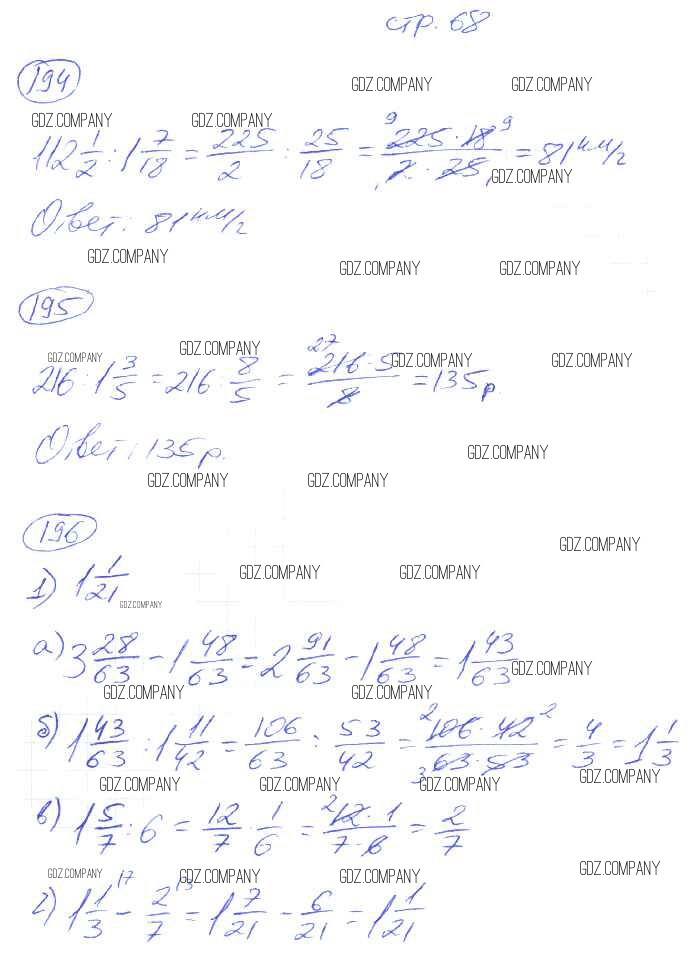 стр. 68
194
GDZ.COMPANY GDZ.COMPANY
GDZ.COMPANY GDZ.COMPANY
112 1/2 : 1 7/18 = 225/2 : 25/18 = 225·18/2·25 = 81 км/г
9 9
1 1
GDZ.COMPANY
Ответ: 81 км/г
GDZ.COMPANY GDZ.COMPANY GDZ.COMPANY
195
GDZ.COMPANY GDZ.COMPANY GDZ.COMPANY GDZ.COMPANY
216 : 1 3/5 = 216 : 8/5 = 216·5/8 = 135 р.
27
Ответ: 135 р.
GDZ.COMPANY
GDZ.COMPANY GDZ.COMPANY
196
GDZ.COMPANY
GDZ.COMPANY GDZ.COMPANY
1) 1 1/21
GDZ.COMPANY
а) 3 28/63 − 1 48/63 = 2 91/63 − 1 48/63 = 1 43/63
GDZ.COMPANY
GDZ.COMPANY GDZ.COMPANY
б) 1 43/63 : 1 11/42 = 106/63 : 53/42 = 106·42/63·53 = 4/3 = 1 1/3
2 2
3
GDZ.COMPANY
GDZ.COMPANY GDZ.COMPANY GDZ.COMPANY
в) 1 5/7 : 6 = 12/7 · 1/6 = 12·1/7·6 = 2/7
2
GDZ.COMPANY GDZ.COMPANY GDZ.COMPANY GDZ.COMPANY
г) 1 1/3 − 2/7 = 1 7/21 − 6/21 = 1 1/21
17 13